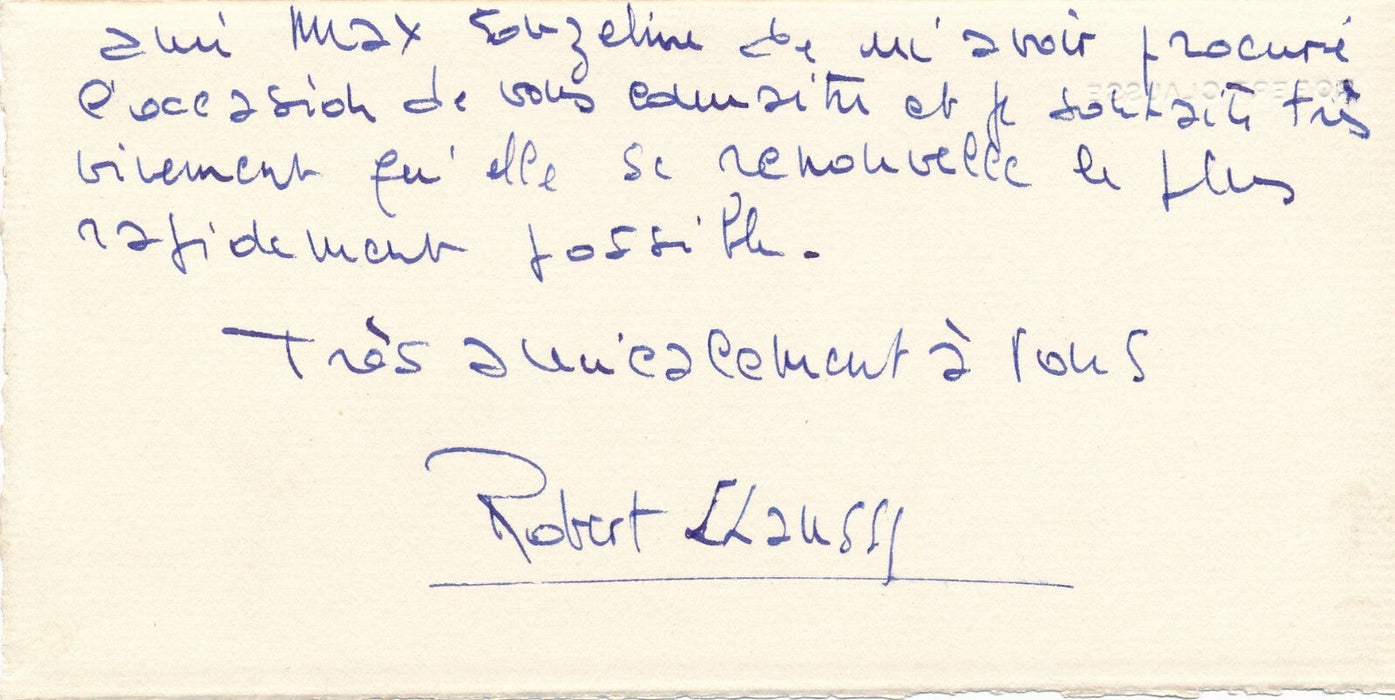 ami Max Gonzeline de m'avoir procuré
l'occasion de vous connaître et je souhaite très
vivement qu'elle se renouvelle le plus
rapidement possible.
Très amicalement à vous
Robert Clausse